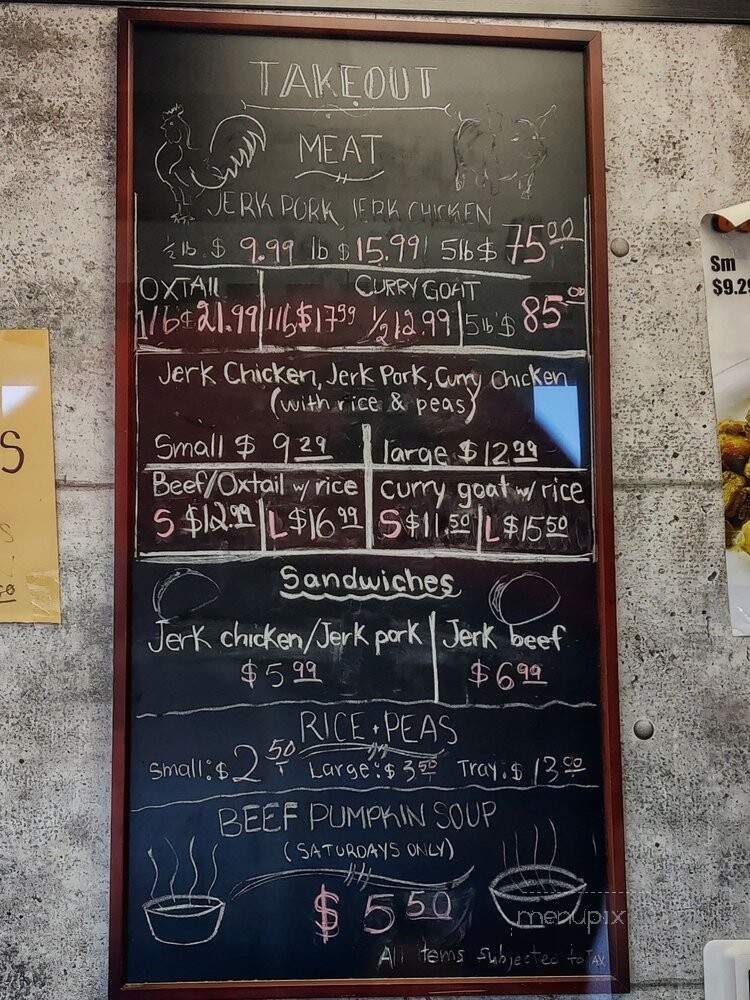 TAKEOUT
MEAT
JERK PORK, JERK CHICKEN
½ lb. $ 9.99 lb $ 15.99 5lb $ 75.00
OXTAIL CURRY GOAT
1 lb $ 21.99 1lb $17.99 1/2 12.99 5lb $ 85.00
Jerk Chicken, Jerk Pork, Curry chicken
(with rice & peas)
Small $ 9.29 large $12.99
Beef/Oxtail w/ rice curry goat w/ rice
S $12.99 L $16.99 S $11.50 L $15.50
Sandwiches
Jerk chicken/Jerk pork Jerk beef
$ 5.99 $ 6.99
RICE + PEAS
Small: $ 2.50 Large: $ 3.50 Tray: $ 13.00
BEEF PUMPKIN SOUP
(SATURDAYS ONLY)
$ 5.50
All items subjected to TAX
Sm
$9.29
S
menupix